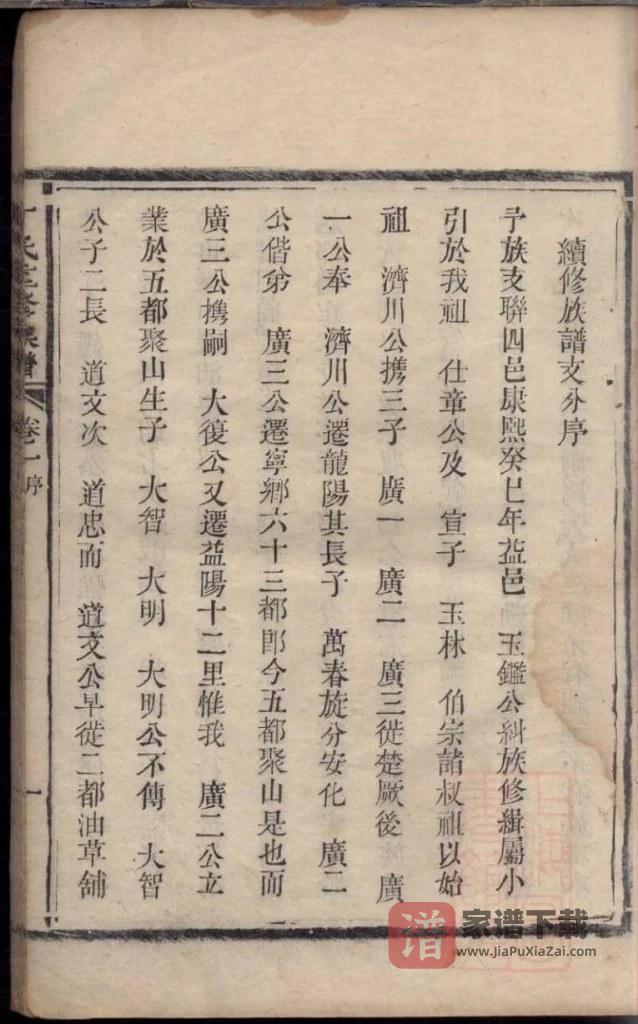 續修族譜支分序
予族支聯四邑康熙癸巳年益邑 玉鑑公糾族修緝屬小
引於我祖 仕章公及 宣子 玉林 伯宗諸叔祖以始
祖 濟川公携三子 廣一 廣二 廣三徙楚厥後 廣
一公奉 濟川公遷龍陽其長子 萬春旋分安化 廣二
公偕弟 廣三公遷寧鄉六十三都即今五都聚山是也而
廣三公携嗣 大復公又遷益陽十二里惟我 廣二公立
業於五都聚山生子 大智 大明 大明公不傳 大智
公子二長 道文次 道忠而 道文公早徙二都油草舖
氏 修族譜 卷一 序 一
家谱下载
www.JiaPuXiaZai.com
谱